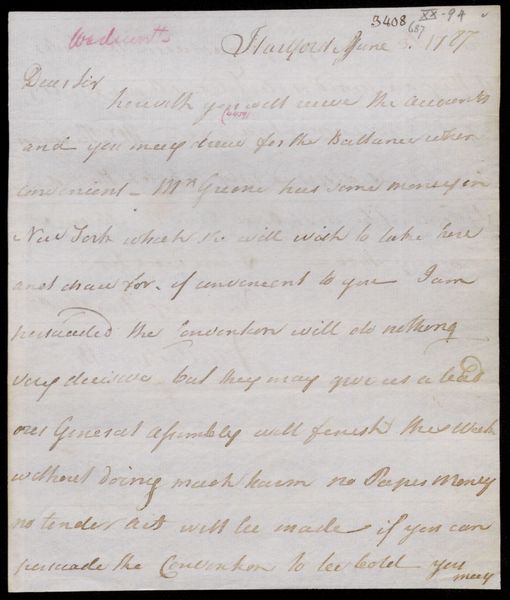 XX-94
3408
687
Wadsworth
Hartford June 1787
Dear Sir
herewith you will receive the accounts
(4459)
and you may draw for the Ballance when
convenient - Mrs Greene has some money in
New York which she will wish to take here
and draw for. if convenient to you I am
persuaded the Convention will do nothing
very decisive but they may give us a lead
our General Assembly will finish this Week
without doing much harm no Paper Money
no tender act will be made if you can
persuade the Convention to be bold you
may